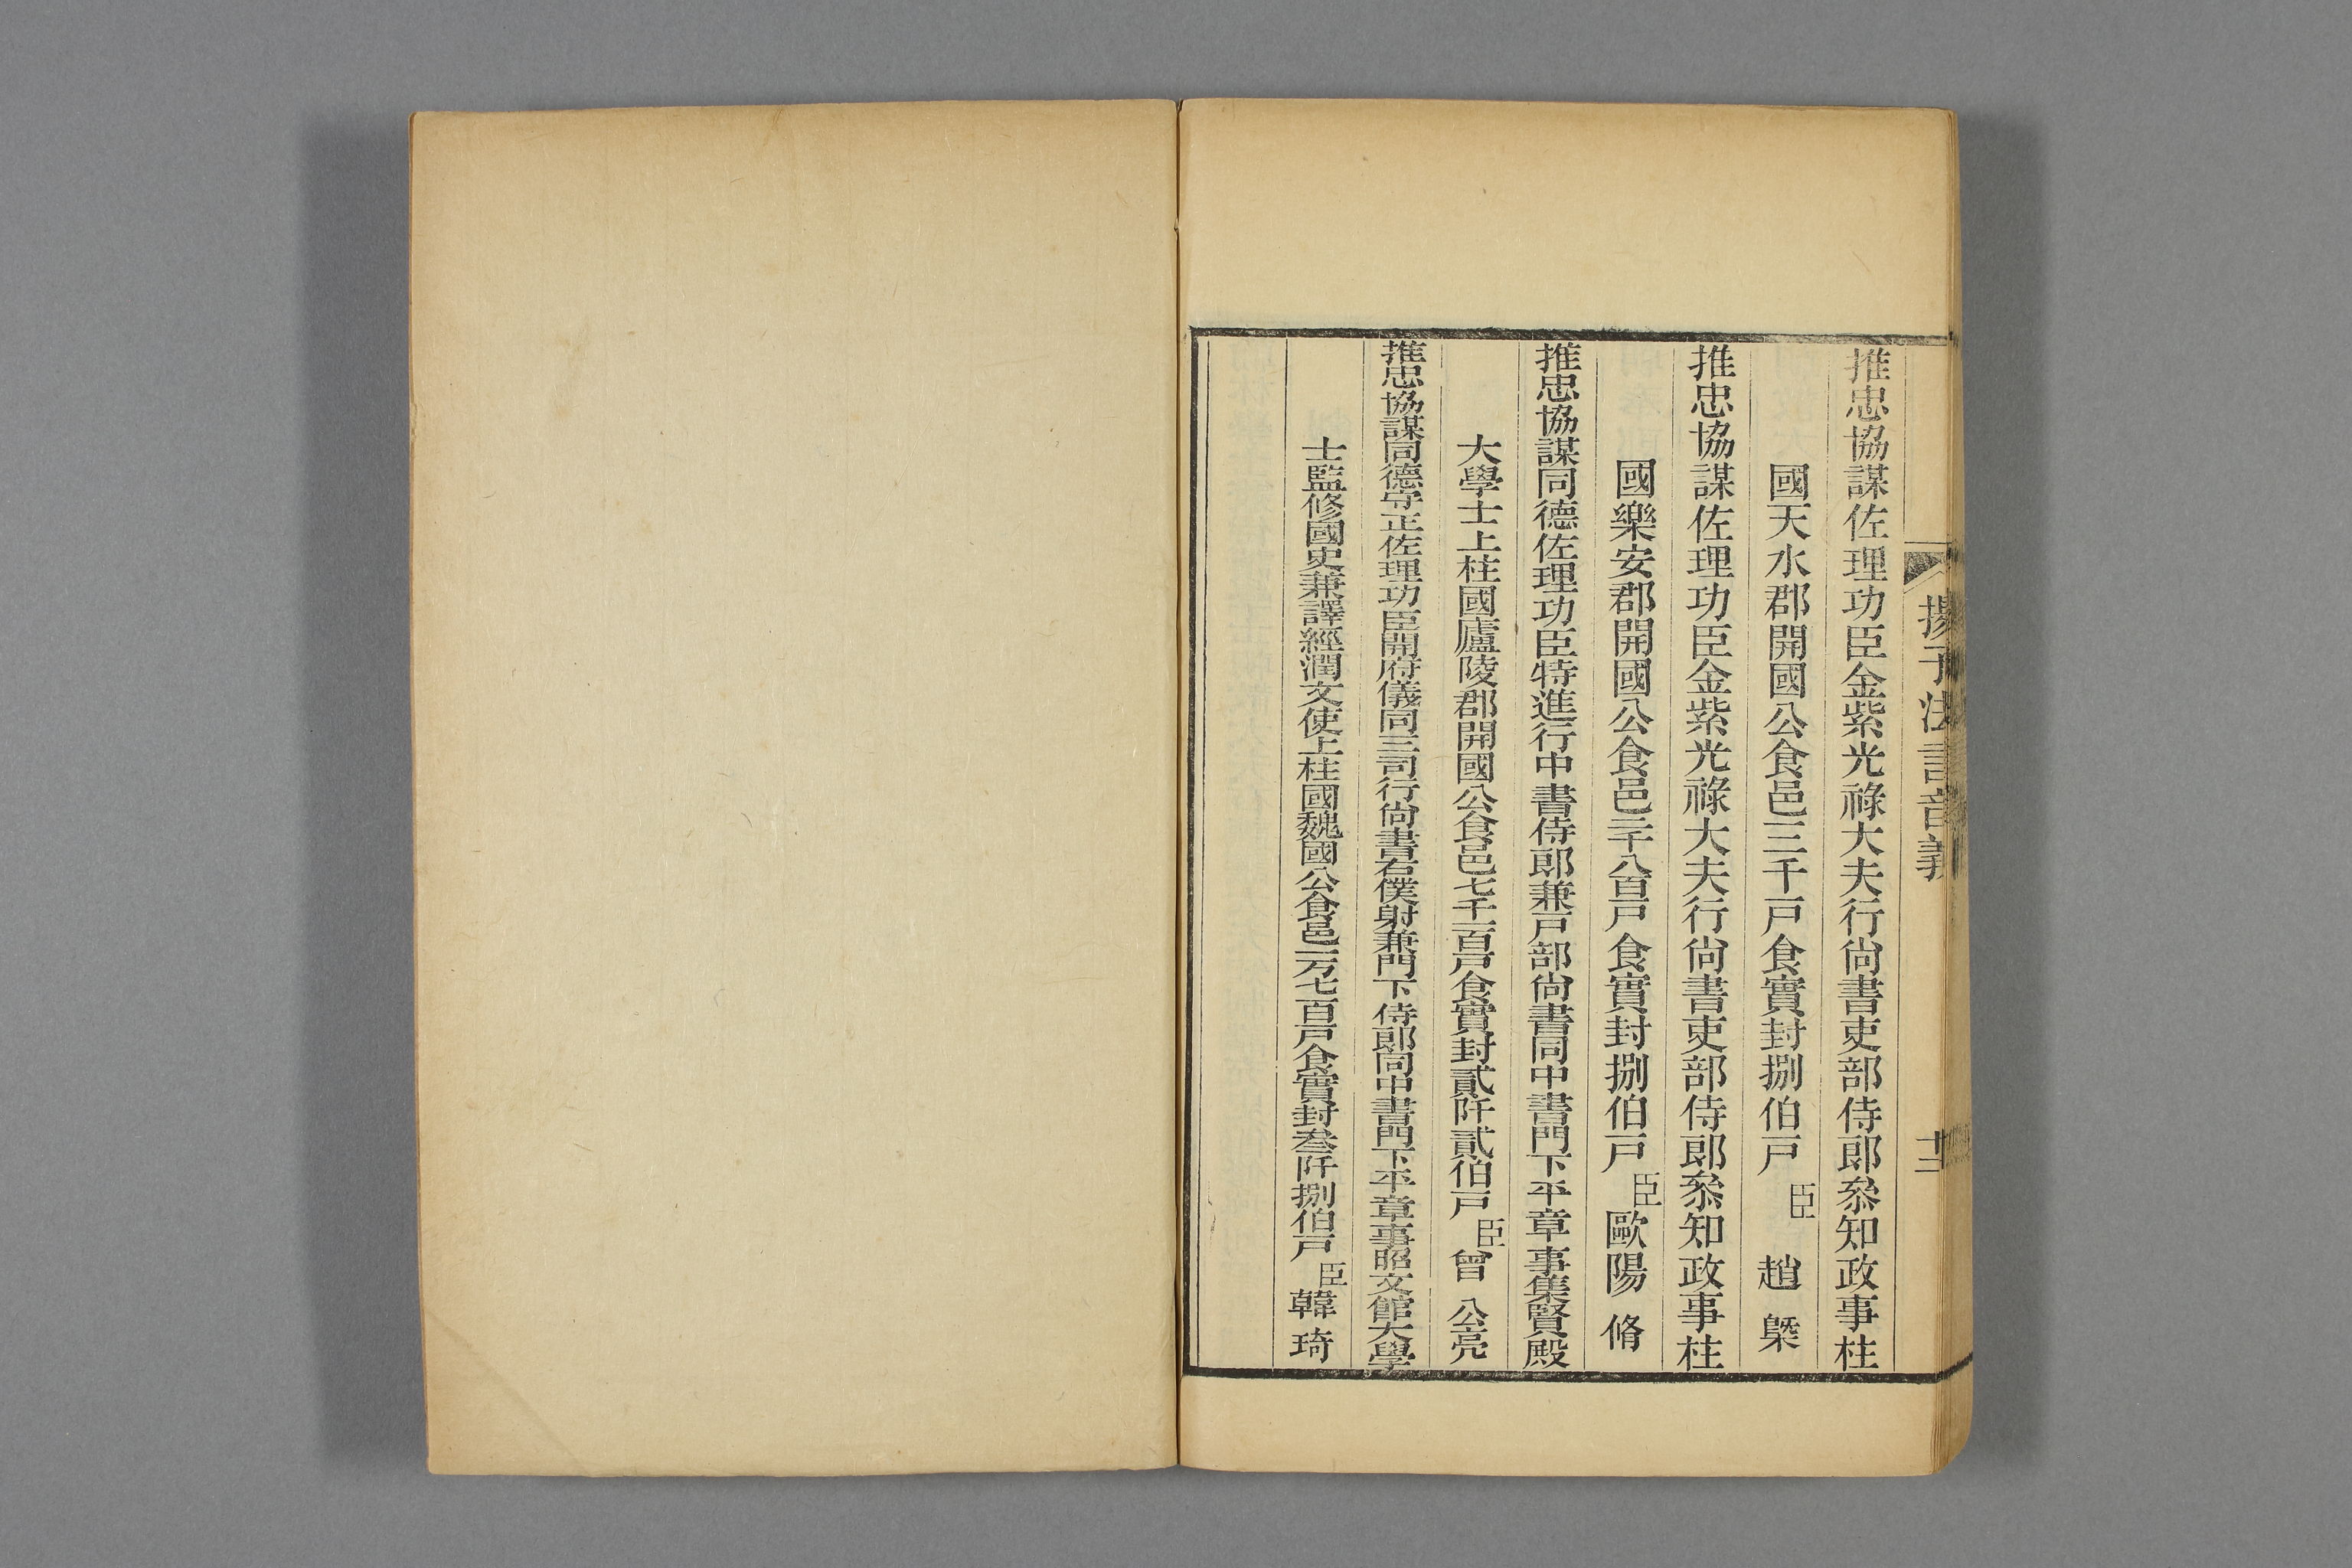 揚子法言音義
十二
推忠協謀佐理功臣金紫光祿大夫行尚書吏部侍郎叅知政事柱
國天水郡開國公食邑三千戸食實封捌伯戸臣趙槩
推忠協謀佐理功臣金紫光祿大夫行尚書吏部侍郎叅知政事柱
國樂安郡開國公食邑二千八百戸食實封捌伯戸臣歐陽脩
推忠協謀同德佐理功臣特進行中書侍郎兼戸部尚書同中書門下平章事集賢殿
大學士上柱國廬陵郡開國公食邑七千一百戸食實封貳阡貳伯戸臣曾公亮
推忠協謀同德守正佐理功臣開府儀同三司行尚書右僕射兼門下侍郎同中書門下平章事昭文館大學
士監修國史兼譯經潤文使上柱國魏國公食邑一万七百戸食實封叁阡捌伯戸臣韓琦